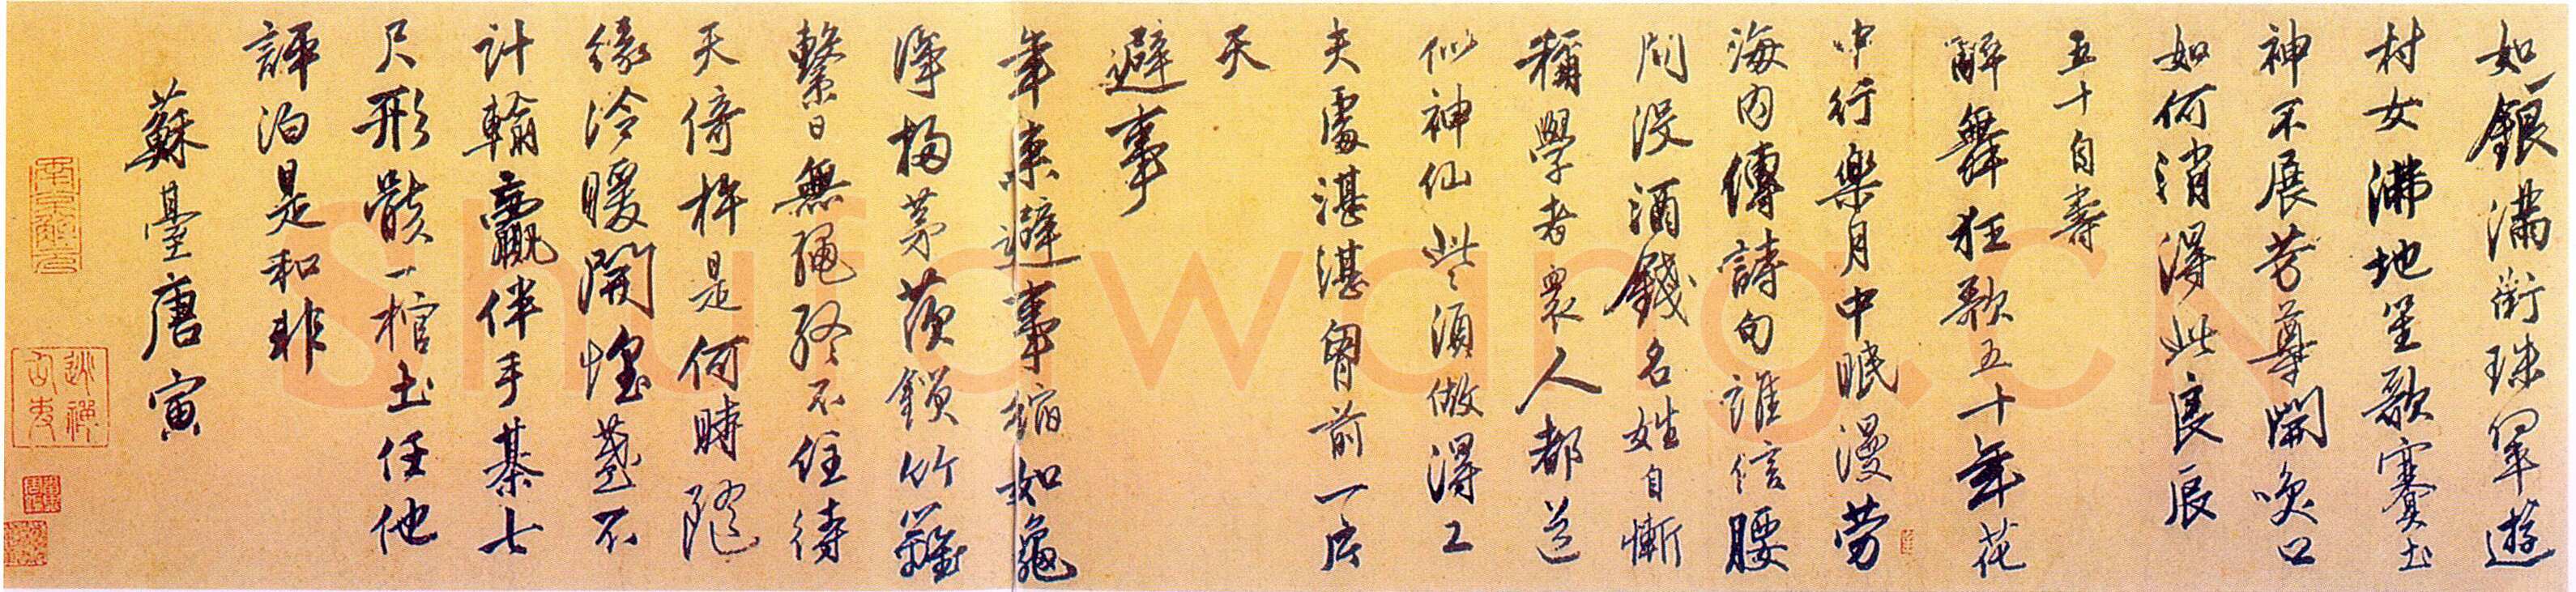 如銀滿街珠翠遊
村女沸地笙歌賽土
神不展芳尊開唉口
如何消得此良辰
五十自壽
醉舞狂歌五十年花
中行樂月中眠漫劳
海内傳詩句誰信腰
间没酒錢名姓自慚
稱學者眾人都道
似神仙些須做得工
夫處湛湛胷前一片
天
避事
年來避事縮如龜
淨掃茅茨鎖竹籬
繫日無繩終不住待
天倚杵是何時隨
緣冷暖開懷盞不
計輸贏伴手棊七
尺形骸一棺土任他
評泊是和非
蘇臺唐寅
shufawang.cn